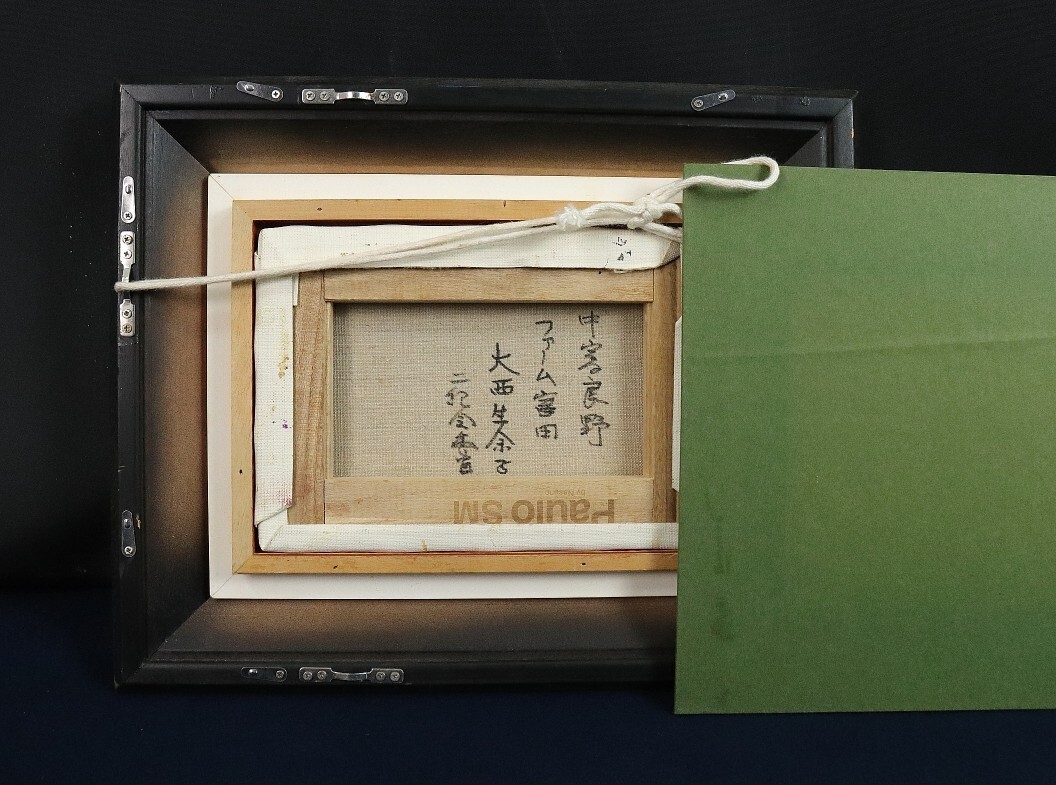 中富良野
ファーム富田
大西生余子
二紀会委員
Paulo SM
by Masaru